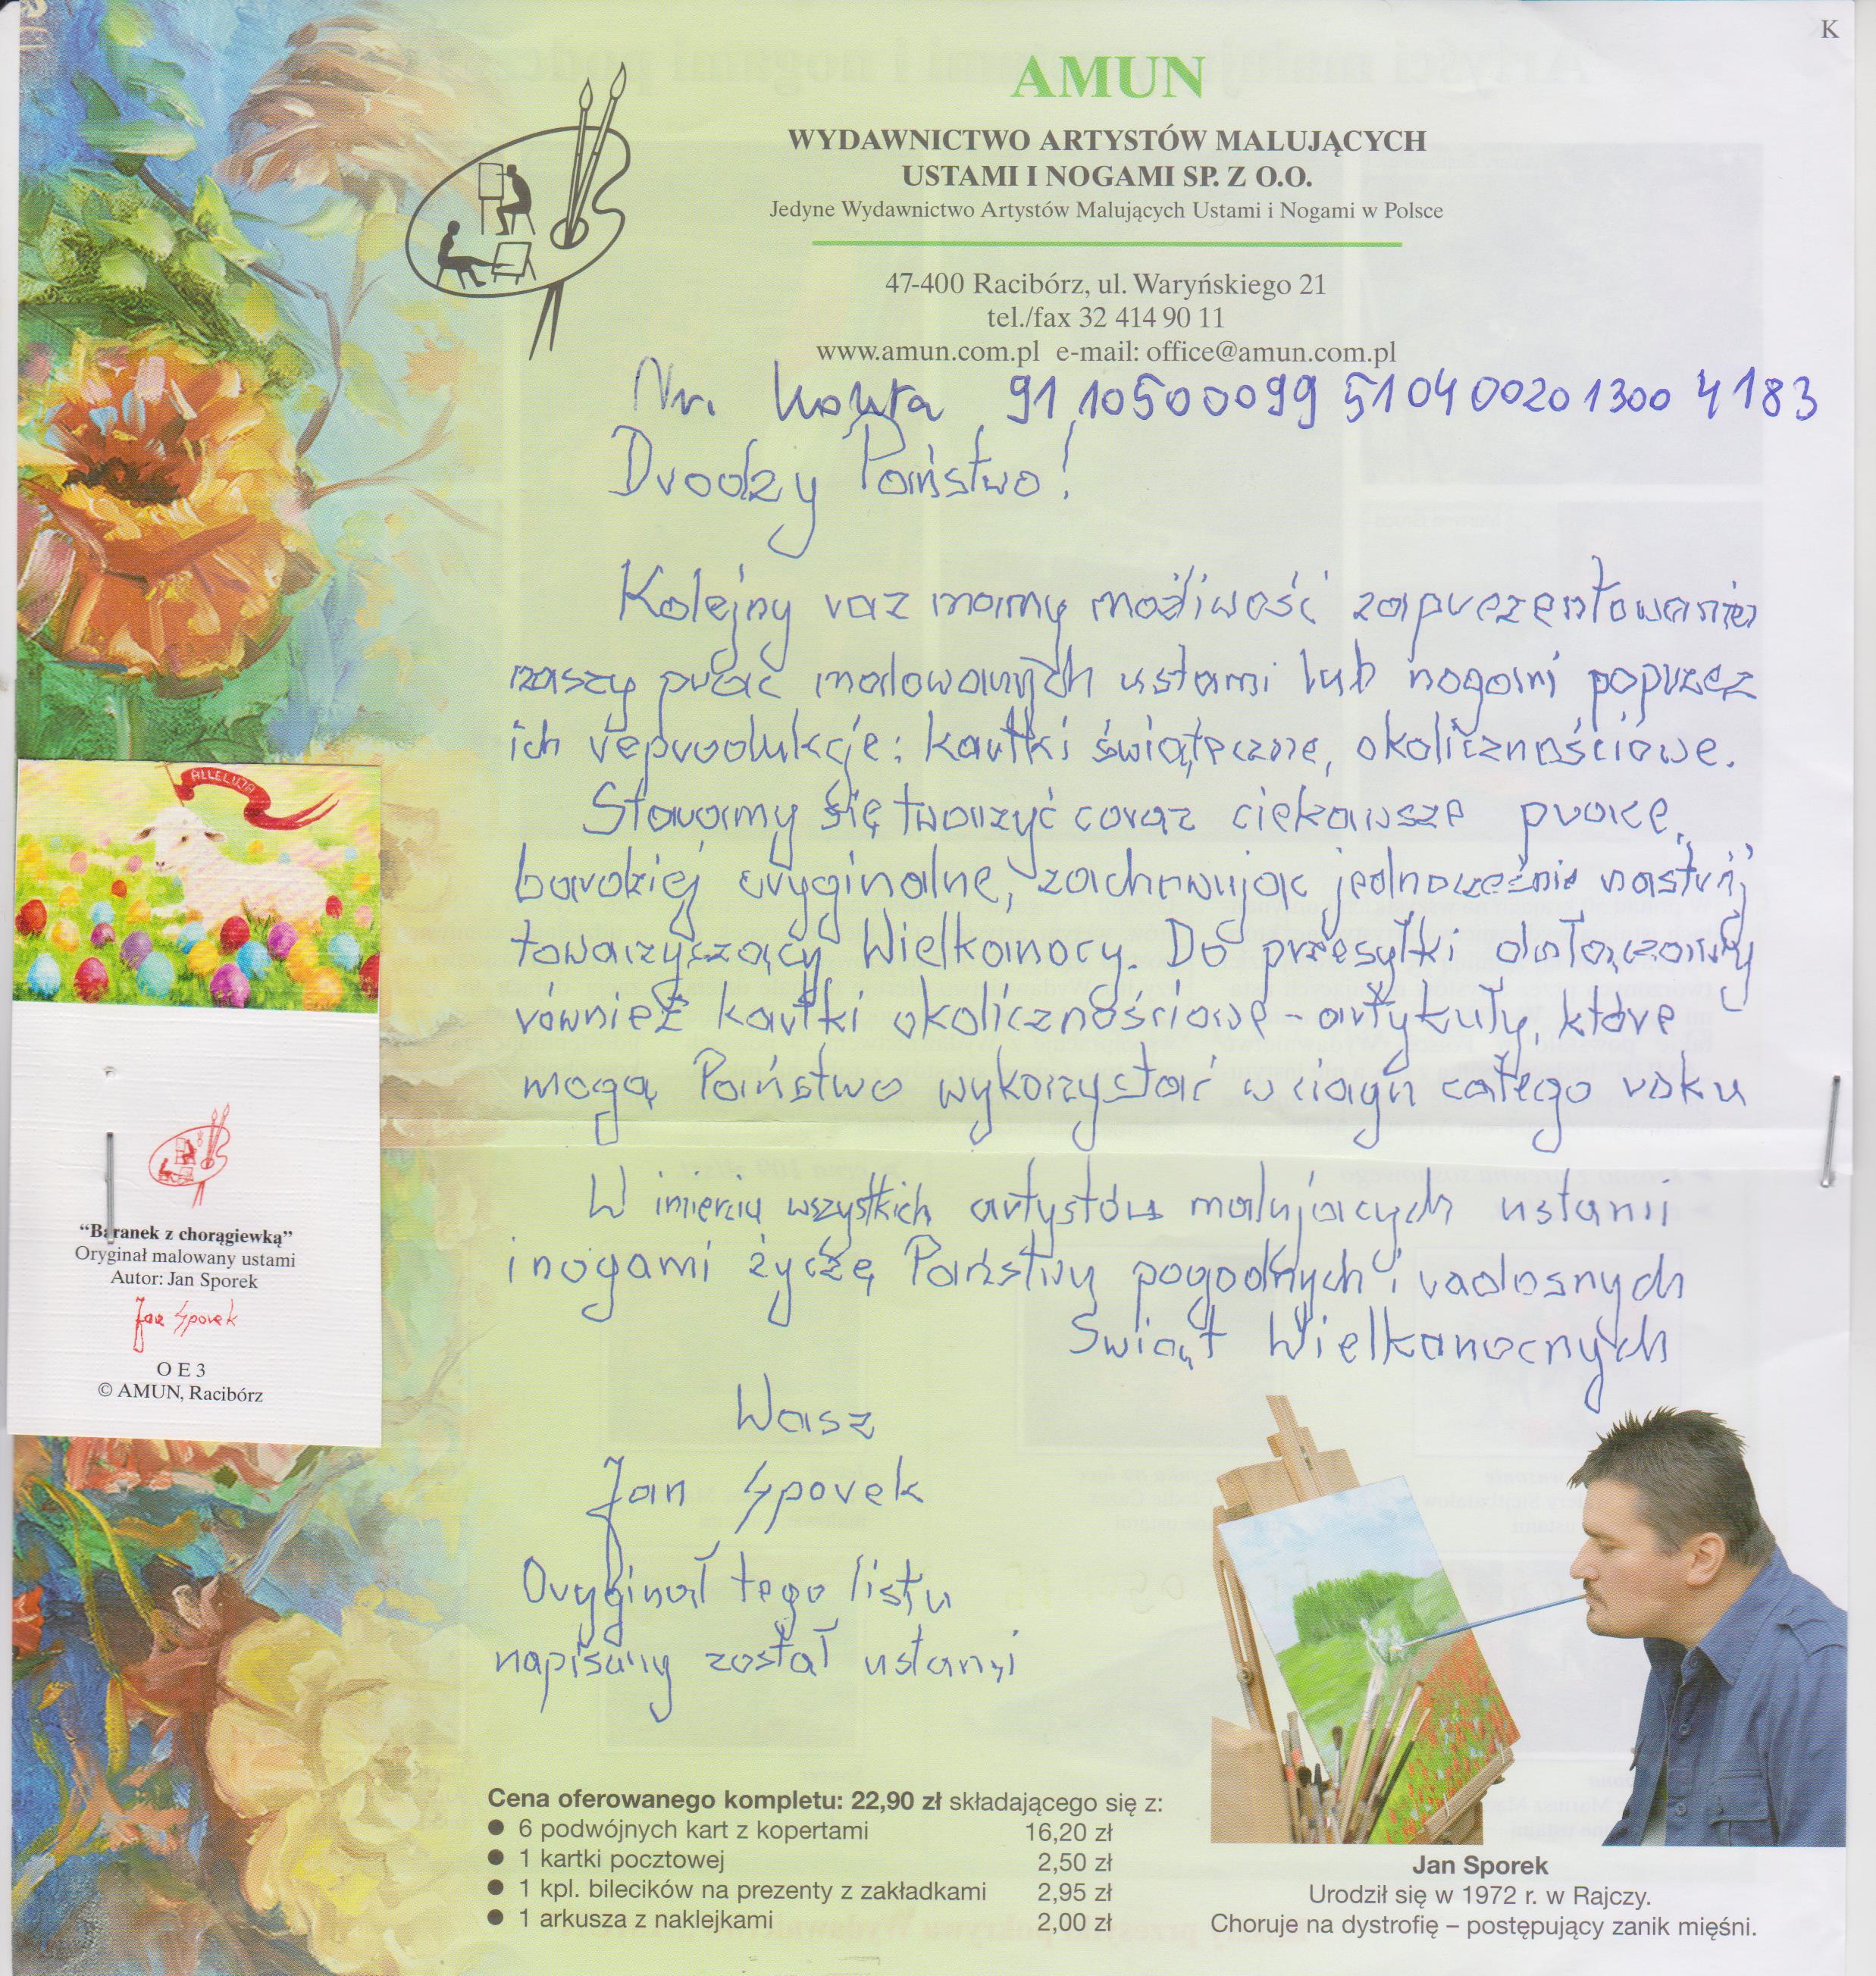 K
AMUN
WYDAWNICTWO ARTYSTÓW MALUJĄCYCH
USTAMI I NOGAMI SP. Z O.O.
Jedyne Wydawnictwo Artystów Malujących Ustami i Nogami w Polsce
47-400 Racibórz, ul. Waryńskiego 21
tel./fax 32 414 90 11
www.amun.com.pl e-mail: office@amun.com.pl
Nr. konta 91 10500099 5104 0020 1300 4183
Drodzy Państwo!
Kolejny raz mamy możliwość zaprezentowania
naszych prac malowanych ustami lub nogami poprzez
ich reprodukcje: kartki świąteczne, okolicznościowe.
Staramy się tworzyć coraz ciekawsze prace,
bardziej oryginalne, zachowując jednocześnie nastrój
towarzyszący Wielkanocy. Do przesyłki dołączamy
również kartki okolicznościowe - artykuły, które
mogą Państwo wykorzystać w ciągu całego roku
W imieniu wszystkich artystów malujących ustami
i nogami życzę Państwu pogodnych i radosnych
Świąt Wielkanocnych
Wasz
Jan Sporek
Oryginał tego listu
napisany został ustami
ALLELUJA
“Baranek z chorągiewką”
Oryginał malowany ustami
Autor: Jan Sporek
Jan Sporek
O E 3
© AMUN, Racibórz
Cena oferowanego kompletu: 22,90 zł składającego się z:
● 6 podwójnych kart z kopertami 16,20 zł
● 1 kartki pocztowej 2,50 zł
● 1 kpl. bilecików na prezenty z zakładkami 2,95 zł
● 1 arkusza z naklejkami 2,00 zł
Jan Sporek
Urodził się w 1972 r. w Rajczy.
Choruje na dystrofię – postępujący zanik mięśni.